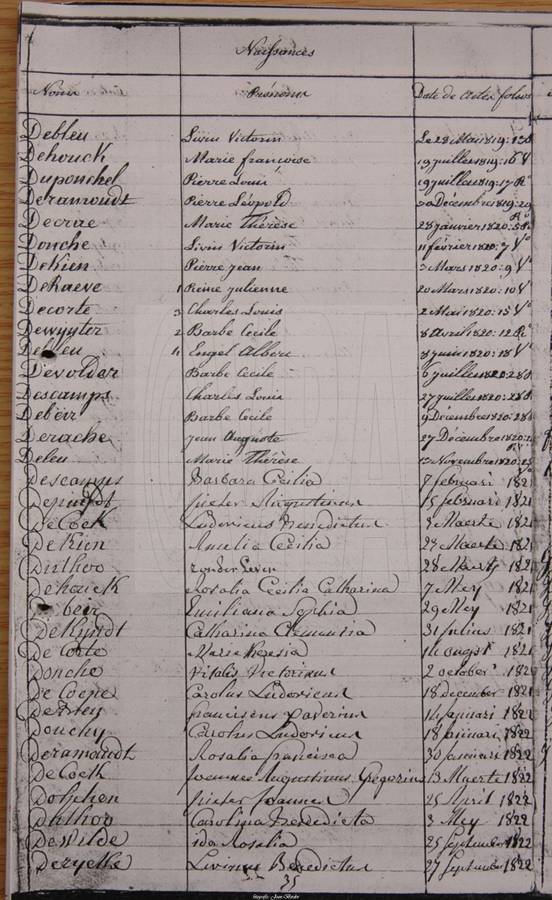 Naissances
Noms Prénoms Date de actes folios
Debleu Livin Victorin Le 28 Mai 1819:
Dehouck Marie françoise 19 juillet 1819:16 V°
Duponchel Pierre Louis 19 juillet 1819:17 R°
Deramoudt Pierre Léopold 30 Decembre 1819:29
Decrae Marie Thérèse 28 janvier 1820:
Donche Livin Victorin 11 février 1820:7 V°
DeKien Pierre jean 3 Mars 1820:9 V°
DeRaeve 1 Reine Julienne 20 Mars 1820:10 V°
Decorte 3 Charles Louis 2 Mai 1820:15 V°
Dewyyter 2 Barbe Cecile 8 avril 1820:12 R°
Debleu 4 Engel Albert 8 juin 1820:18 V°
Devolder Barbe Cecile 6 juillet 1820:
Descamps Charles Louis 27 juillet 1820:
Debeir Barbe Cecile 9 Décembre 1820:
Derache jean Auguste 27 Décembre 1820:
Deleu Marie Thérèse Novembre 1820:
Descamps Barbara Cecilia 7 februari 1821
Pieter Augustinus 15 februari 1821
DeCock Ludovicus Benedictus 8 Maerte 1821
DeKien Amelia Cecilia 1821
Duthoo zonder Leven 28 Maerte 1821
Dehouck Rosalia Cecilia Catharina 7 Mey 1821
beir Emiliana Sophia 29 Mey 1821
DeKyndt Catharina Clementia 31 Julius 1821
DeCorte Marie Theresia 14 august 1821
Donche Vitalis Victorinus 2 october 1821
De Coene Carolus Ludovicus 18 december 1821
franciscus Xaverius 14 januari 1822
Douchy Carolus Ludovicus 18 januari 1822
Deramoudt Rosalia francisca 30 januari 1822
DeCock Joannes Augustinus Gregorius 13 Maerte 1822
Dolphen Pieter Joannes 25 April 1822
Duthoo Carolina Benedicta 3 Mey 1822
DeWilde ida Rosalia 25 September 1822
Derycke Livinus Benedictus 27 September 1822
35